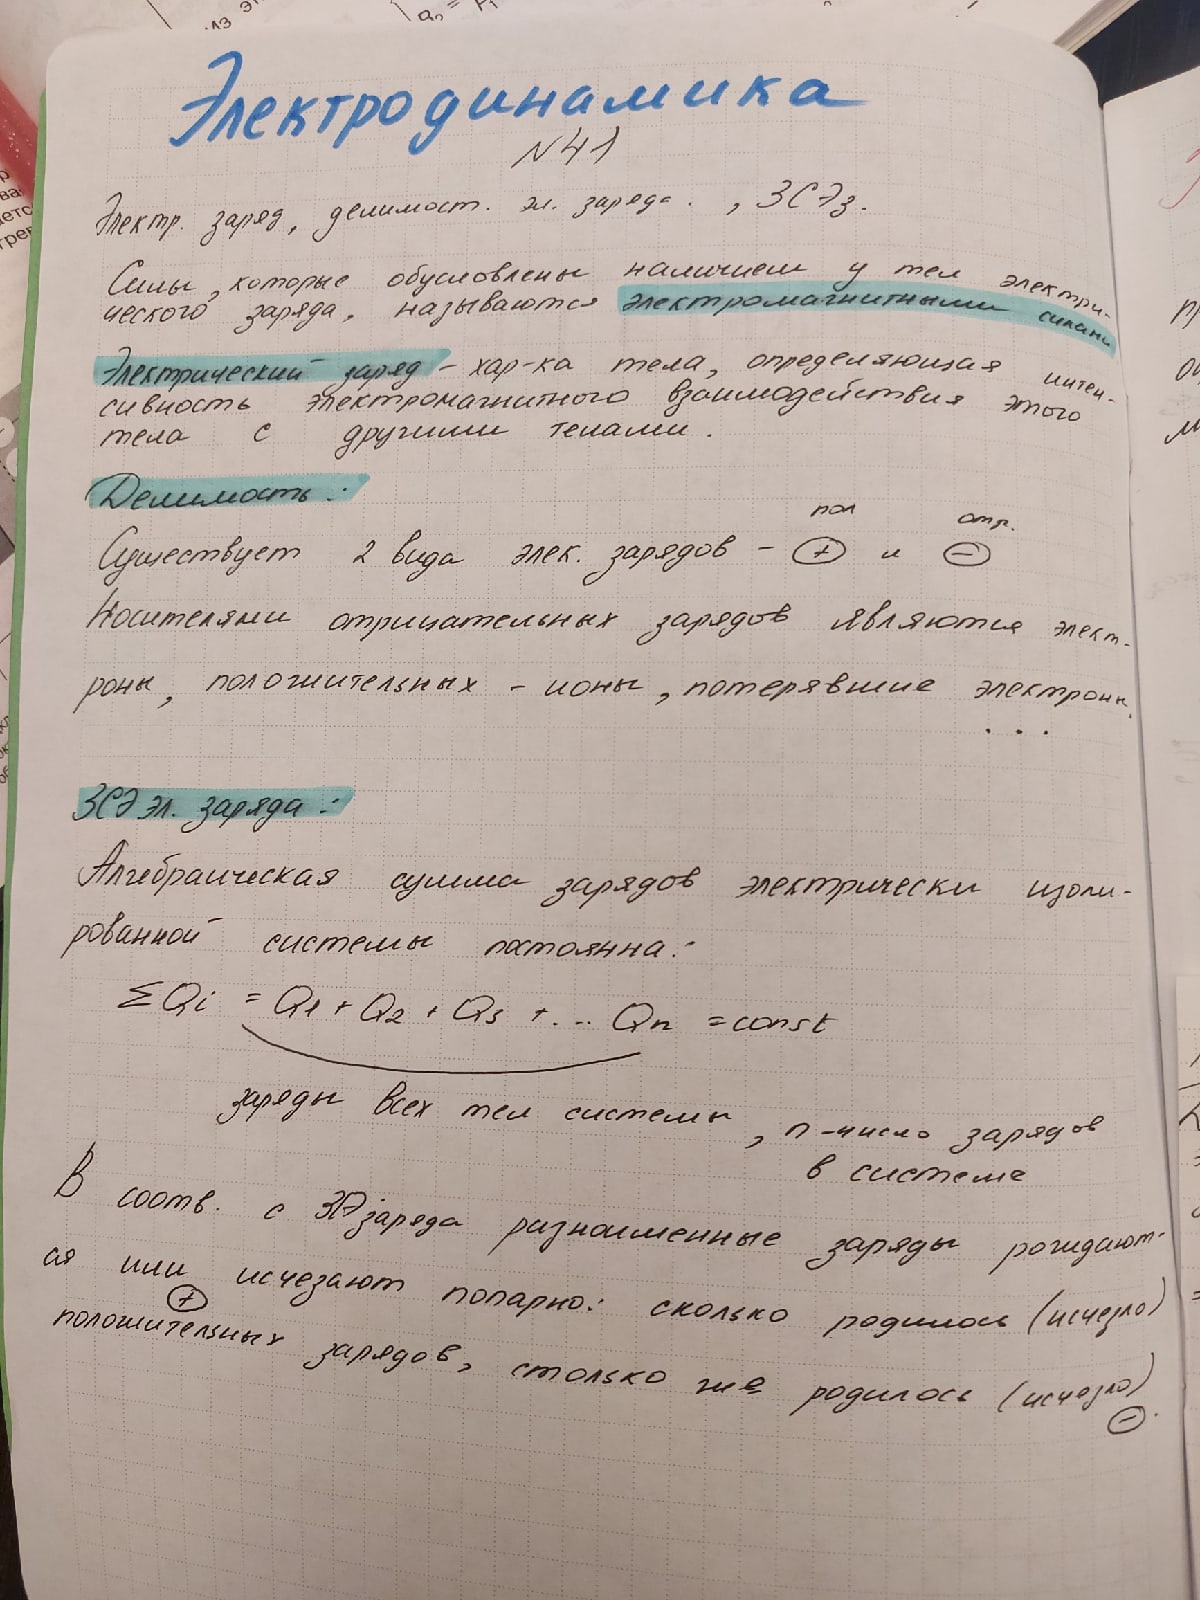 Электродинамика
№41
Электр. заряд, делимост. эл. заряда. , ЗСЭз.
Силы, которые обусловлены наличием у тел электри-
ческого заряда, называются электромагнитными силами
Электрический заряд - хар-ка тела, определяющая интен-
сивность электромагнитного взаимодействия этого
тела с другими телами.
Делимость:
пол отр.
Существует 2 вида элек. зарядов - ⊕ и ⊖
Носителями отрицательных зарядов являются элект-
роны, положительных - ионы, потерявшие электроны.
...
ЗСЭ эл. заряда:
Алгебраическая сумма зарядов электрически изоли-
рованной системы постоянна:
ΣQi = Q1 + Q2 + Q3 + ... Qn = const
заряды всех тел системы, n - число зарядов
в системе
В соотв. с ЗСЭ заряда разноименные заряды рождают-
ся или исчезают попарно: сколько родилось (исчезло)
⊕
положительных зарядов, столько же родилось (исчезло)
⊖.